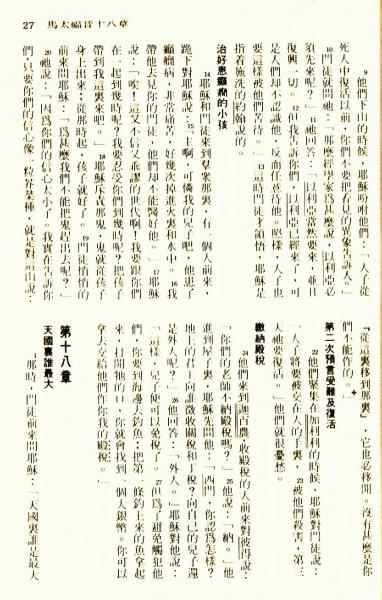 27 馬太福音十八章
9他們下山的時候，耶穌吩咐他們：「人子從
死人中復活以前，你們不要把看見的異象告訴人。」
10門徒就問祂：「那麼經學家爲甚麼說，以利亞必
須先來呢？」11祂回答：「以利亞當然要來，並且
復興一切。12但我告訴你們，以利亞已經來了，可
是人們却不認識他，反而任意待他。照樣，人子也
要這樣被他們苦待。」13這時門徒才領悟，耶穌是
指着施洗的約翰說的。
治好患癲癇的小孩
14耶穌和門徒來到羣衆那裏，有一個人前來，
跪下對耶穌說：15「主啊，可憐我的兒子吧，他患了
癲癇病，非常痛苦，好幾次掉進火裏和水中。16我
帶他去見你的門徒，他們却不能醫好他。」17耶穌
說：「唉！這又不信又乖謬的世代啊！我要跟你們
在一起到幾時呢？我要忍受你們到幾時呢？把孩子
帶到我這裏來吧。」18耶穌斥責那鬼，鬼就從孩子
身上出來；從那時起，孩子就好了。19門徒悄悄的
前來問耶穌：「爲甚麼我們不能把鬼趕出去呢？」
20祂說：「因爲你們的信心太小了。我實在告訴你
們，只要你們的信心像一粒芥菜種，就是對這山說：
『從這裏移到那裏』，它也必移開。沒有甚麼是你
們不能作的。」
第二次預言受難及復活
22他們聚集在加利利的時候，耶穌對門徒說：
「人子將要被交在人的手裏，23被他們殺害，第三
天祂要復活。」他們就很憂愁。
繳納殿稅
24他們來到迦百農，收殿稅的人前來對彼得說：
「你們的老師不納殿稅嗎？」25他說：「納。」他
進到屋子裏，耶穌先問他：「西門，你認爲怎樣？
地上的君王向誰徵收關稅和丁稅？向自己的兒子還
是外人呢？」26他回答：「外人。」耶穌對他說：
「這樣，兒子便可以免稅了。27但爲了避免觸犯他
們，你要到海邊去釣魚；把第一條釣上來的魚拿起
來，打開牠的口，你就會找到一個大銀幣。你可以
拿去交給他們作你我的殿稅。」
第十八章
天國裏誰最大
1那時，門徒前來問耶穌：「天國裏誰是最大